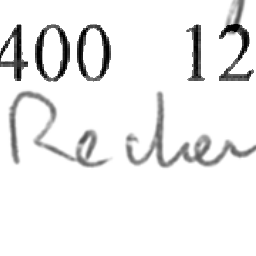 400 12
Recher